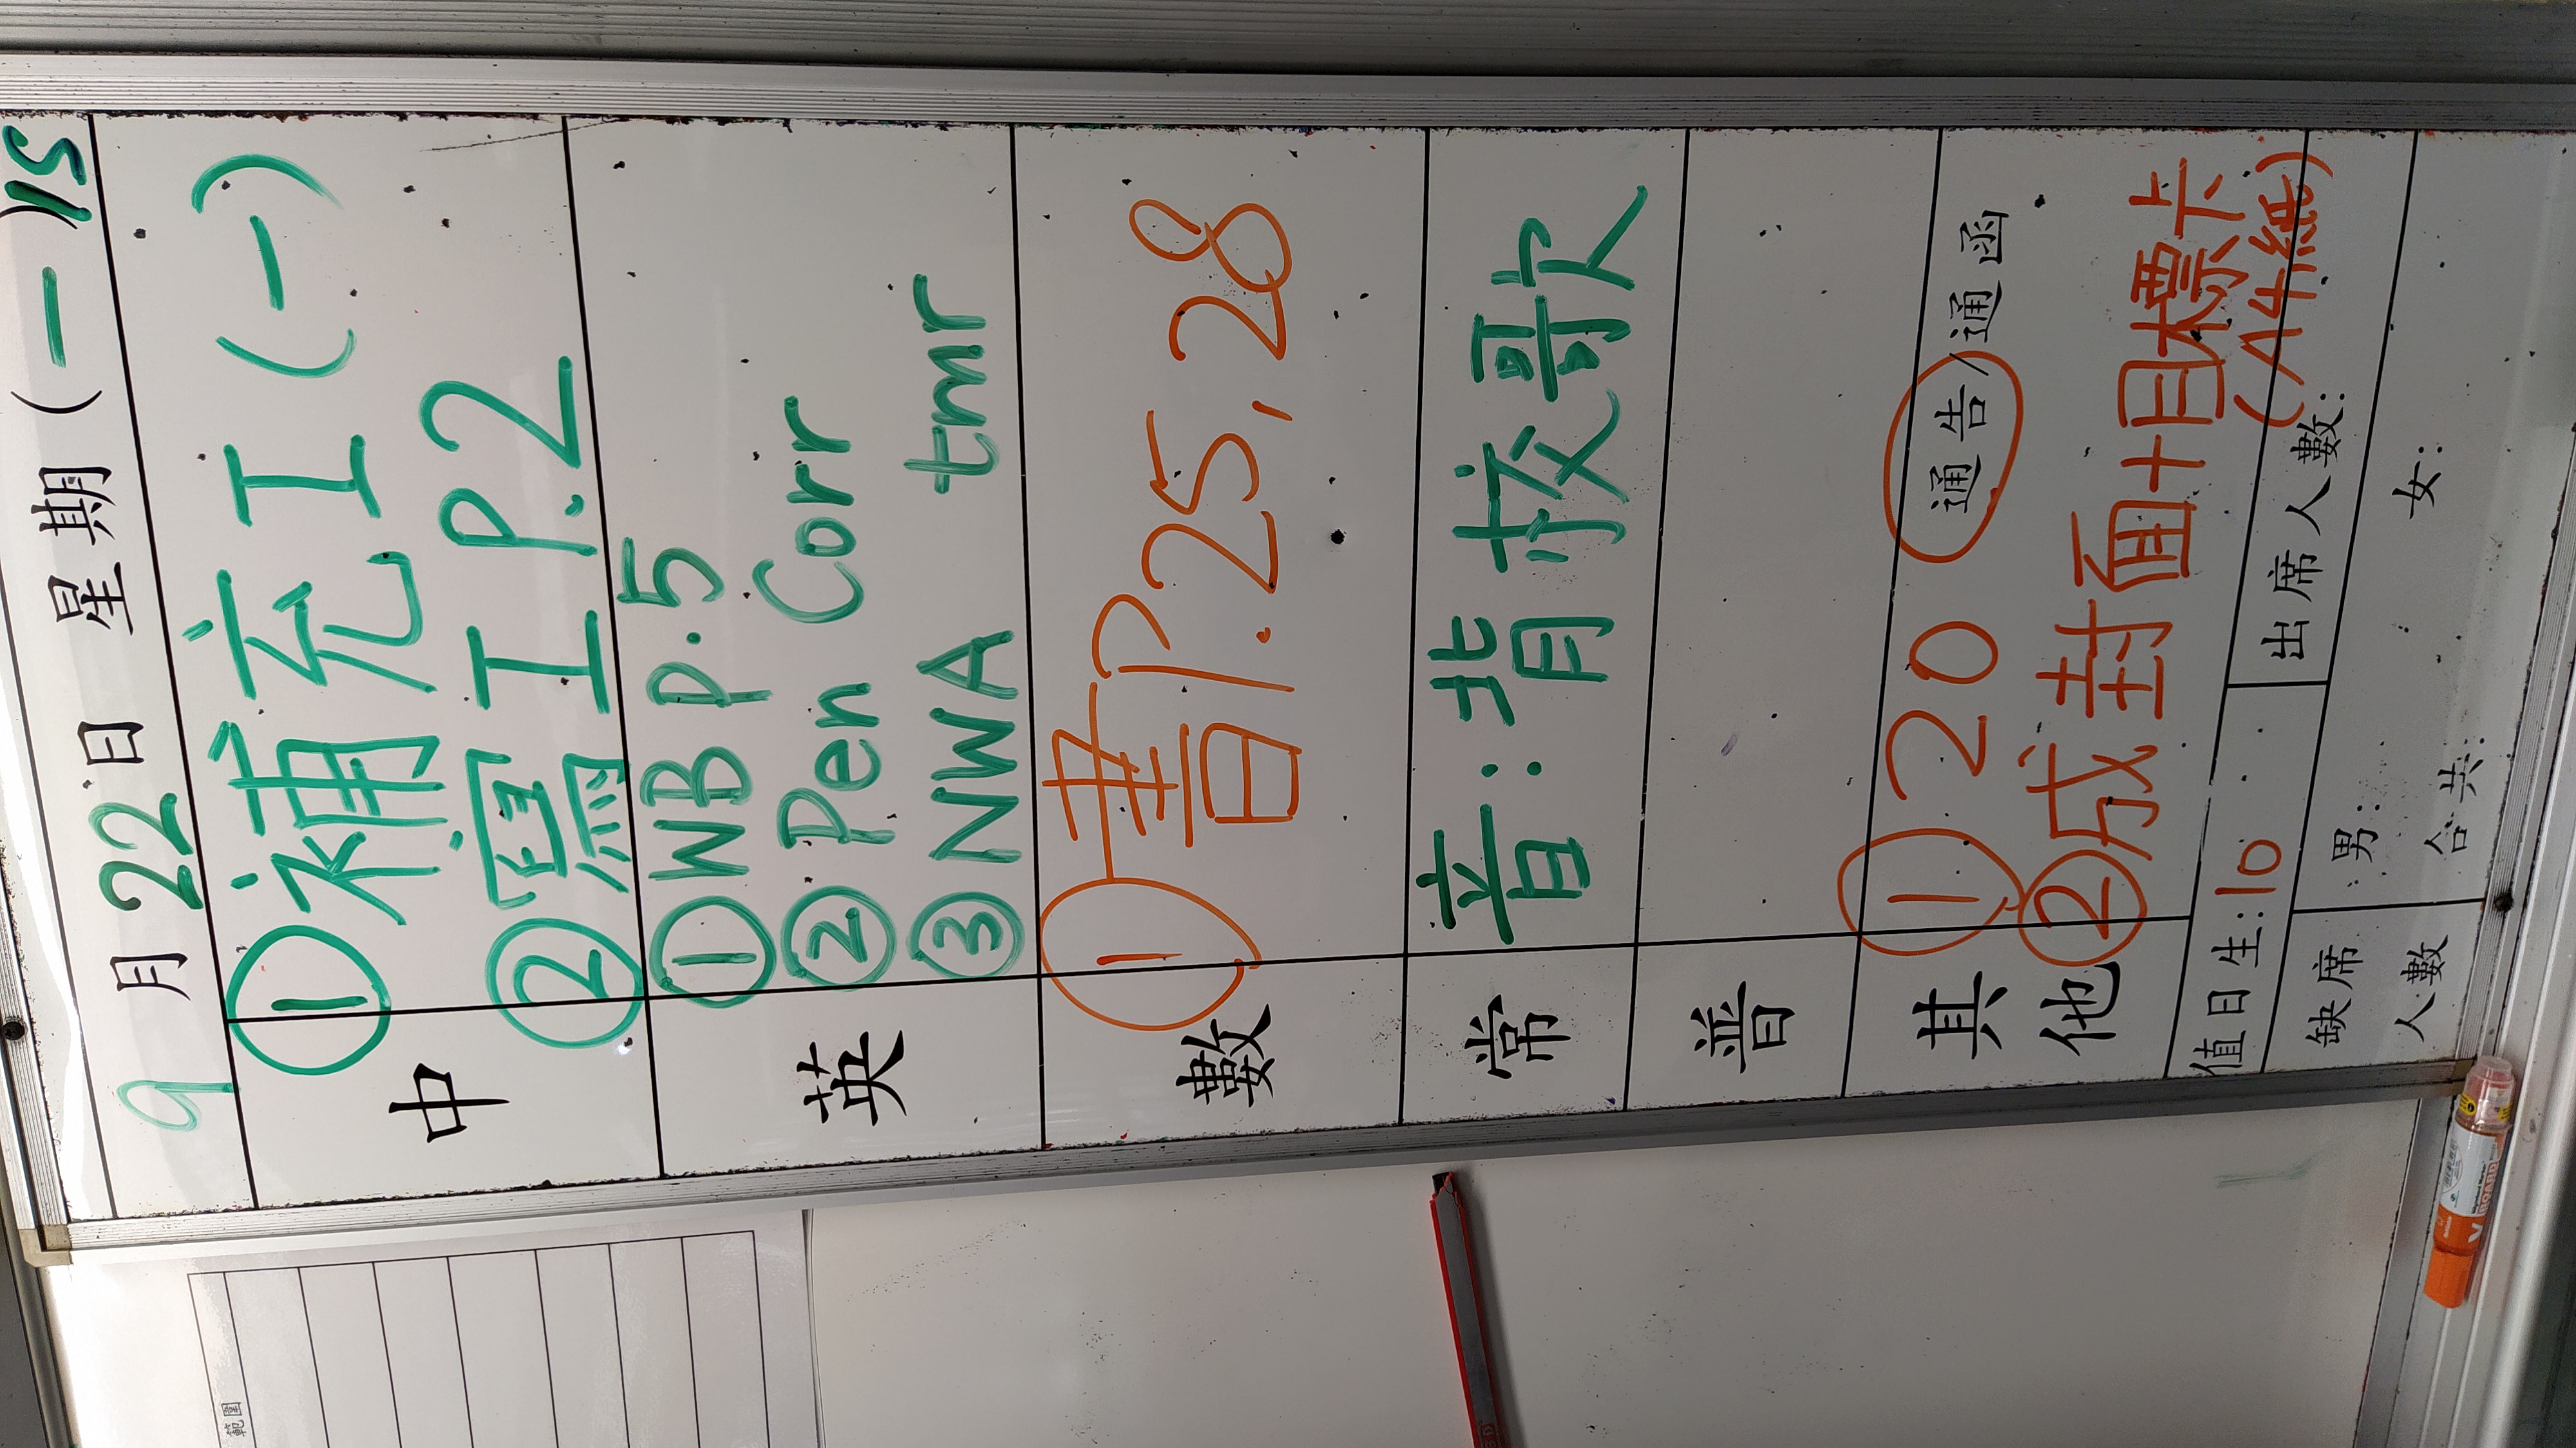 9月22日 星期(一)1S
中
①補充工(一)
②寫工 P.2
英
①WB p.5
②Pen Corr
③NWA tmr
數
①書P.25, 28
常
音:背校歌
普
其他
①20 通告/通函
②成封面+目標卡
(A4紙)
值日生:10
出席人數:
缺席人數
男:
女:
合共:
範圍